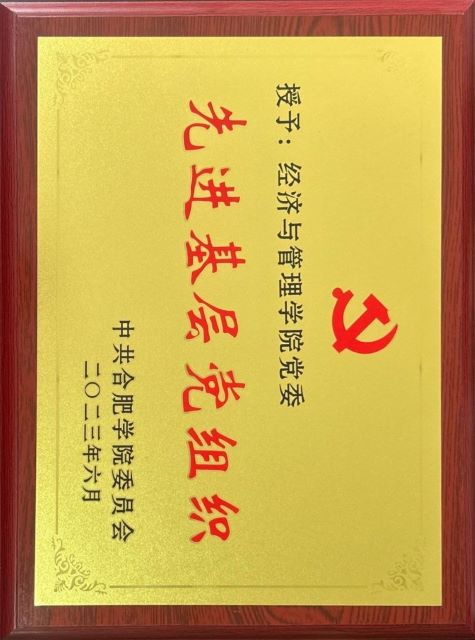 授予：经济与管理学院党委
先进基层党组织
中共合肥学院委员会
二〇二三年六月